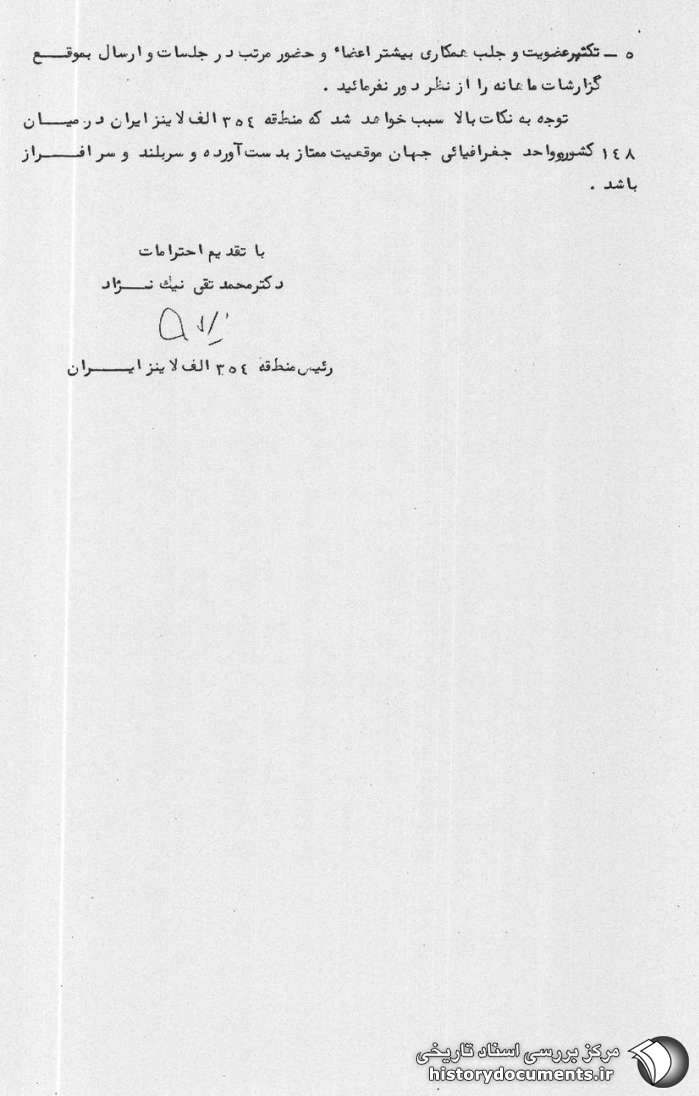 ۵ ــ تکثیرعضویت و جلب همکاری بیشتر اعضاء و حضور مرتب در جلسات و ارسال بموقــــع
گزارشات ماهانه را از نظر دور نفرمائید .
توجه به نکات بالا سبب خواهد شد که منطقه ۳۵٤ الف لاینز ایران در میـــان
۱٤۸ کشوروواحد جغرافیائی جهان موقعیت ممتاز بدست آورده و سربلند و سر افـــراز
باشد .
با تقدیم احترامات
دکترمحمد تقی نیك نـــژاد
رئیس منطقه ۳۵٤ الف لاینز ایـــــران
مرکز بررسی اسناد تاریخی
historydocuments.ir